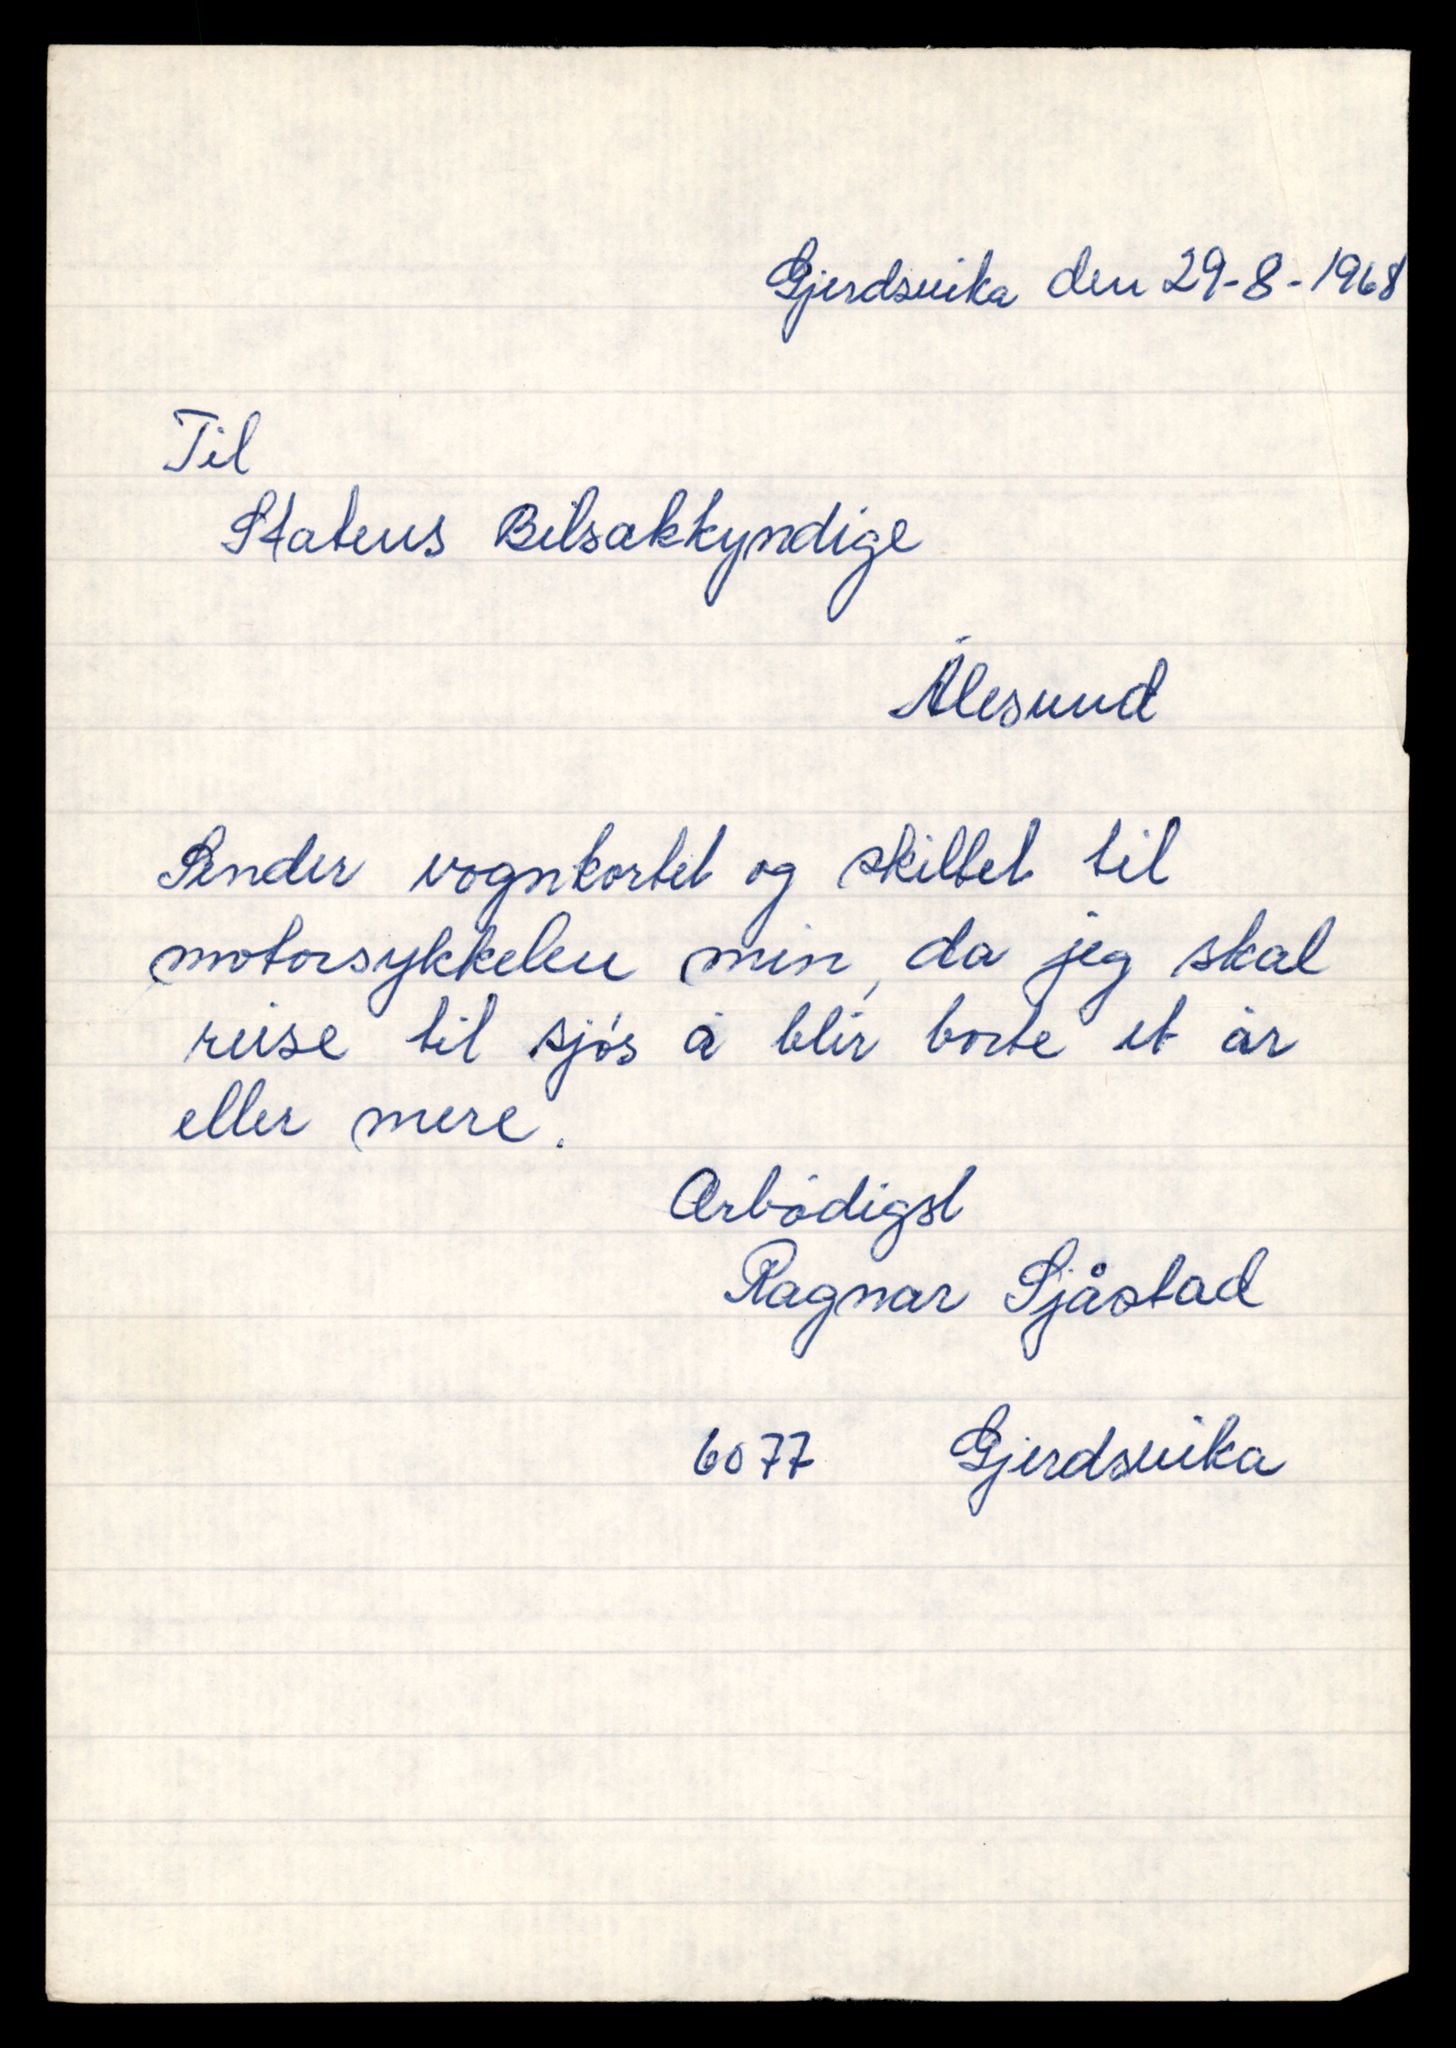 Gjerdsvika den 29-8-1968
Til
Statens Bilsakkyndige
Ålesund
Sender vognkortet og skiltet til
motorsykkelen min, da jeg skal
reise til sjøs å blir borte et år
eller mere.
Arbødigst
Ragnar Sjåstad
6077 Gjerdsvika